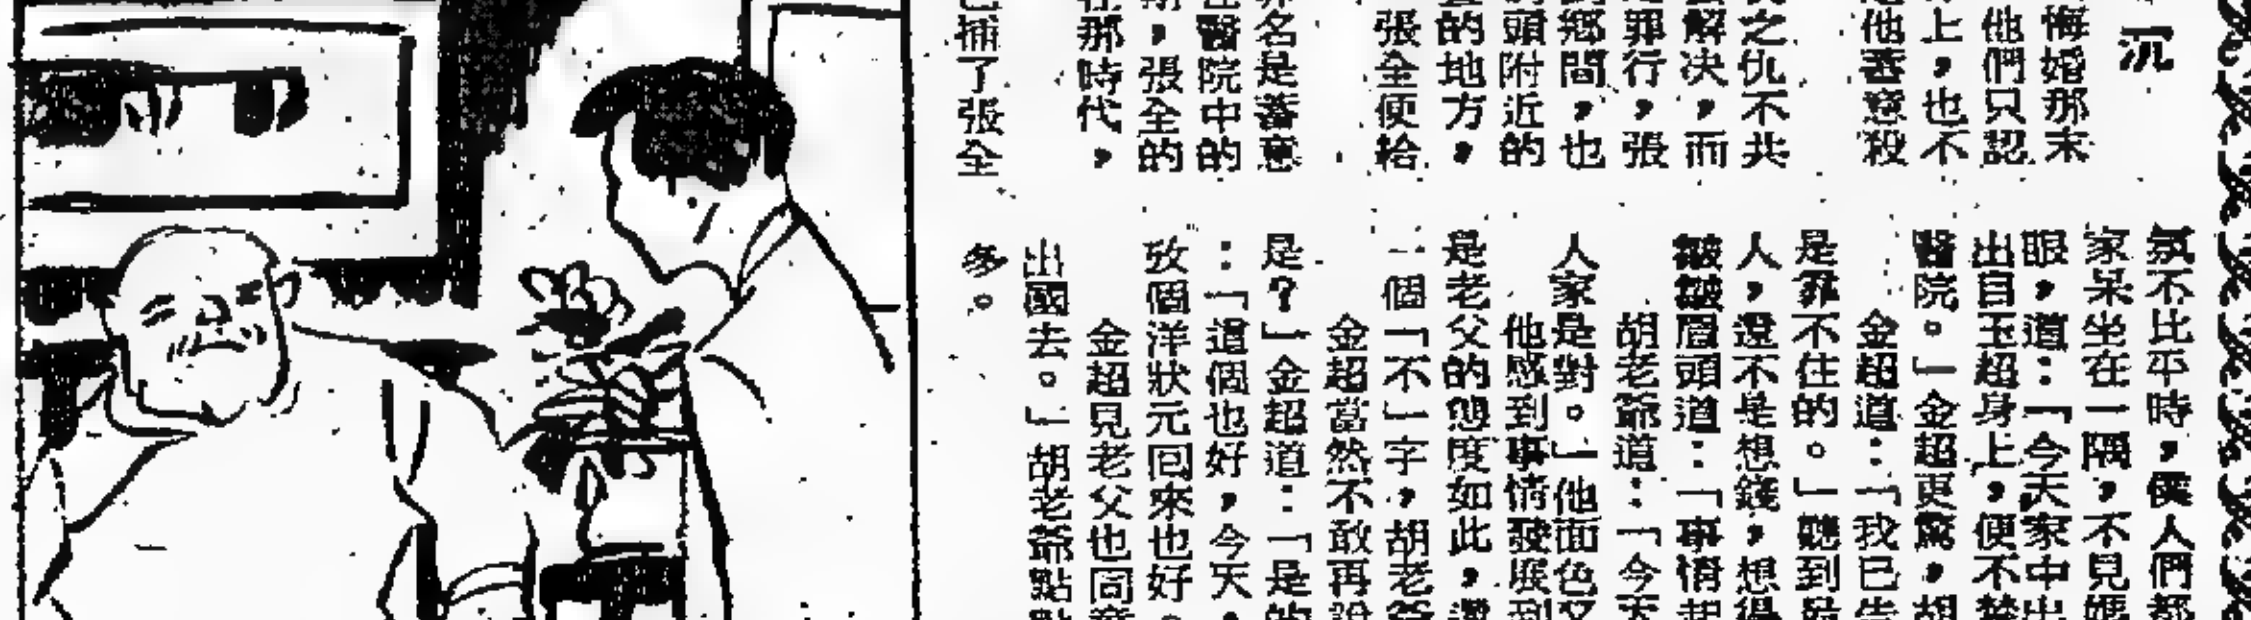 沉
悔婚那末
他們只認
上，也不
他蓄意殺
之仇不共
解決，而
罪行，張
鄉間，也
頭附近的
的地方，
張全便給
名是蓄意
醫院中的
，張全的
那時代，
捕了張全
氛不比平時，僕人們都
家呆坐在一隅，不見媽
眼，道：「今天家中出
出自玉超身上，便不禁
醫院。」金超更驚，胡
金超道：「我已告
是靠不住的。」聽到
人，還不是想錢，想得
皺皺眉頭道：「事情起
胡老爺道：「今天
人家是對。」他面色又
他感到事情發展到
是老父的態度如此，還
一個「不」字，胡老爺
金超當然不敢再說
是？」金超道：「是的
：「這個也好，今天，
攷個洋狀元回來也好。
金超見老父也同意
出國去。」胡老爺點點
多。